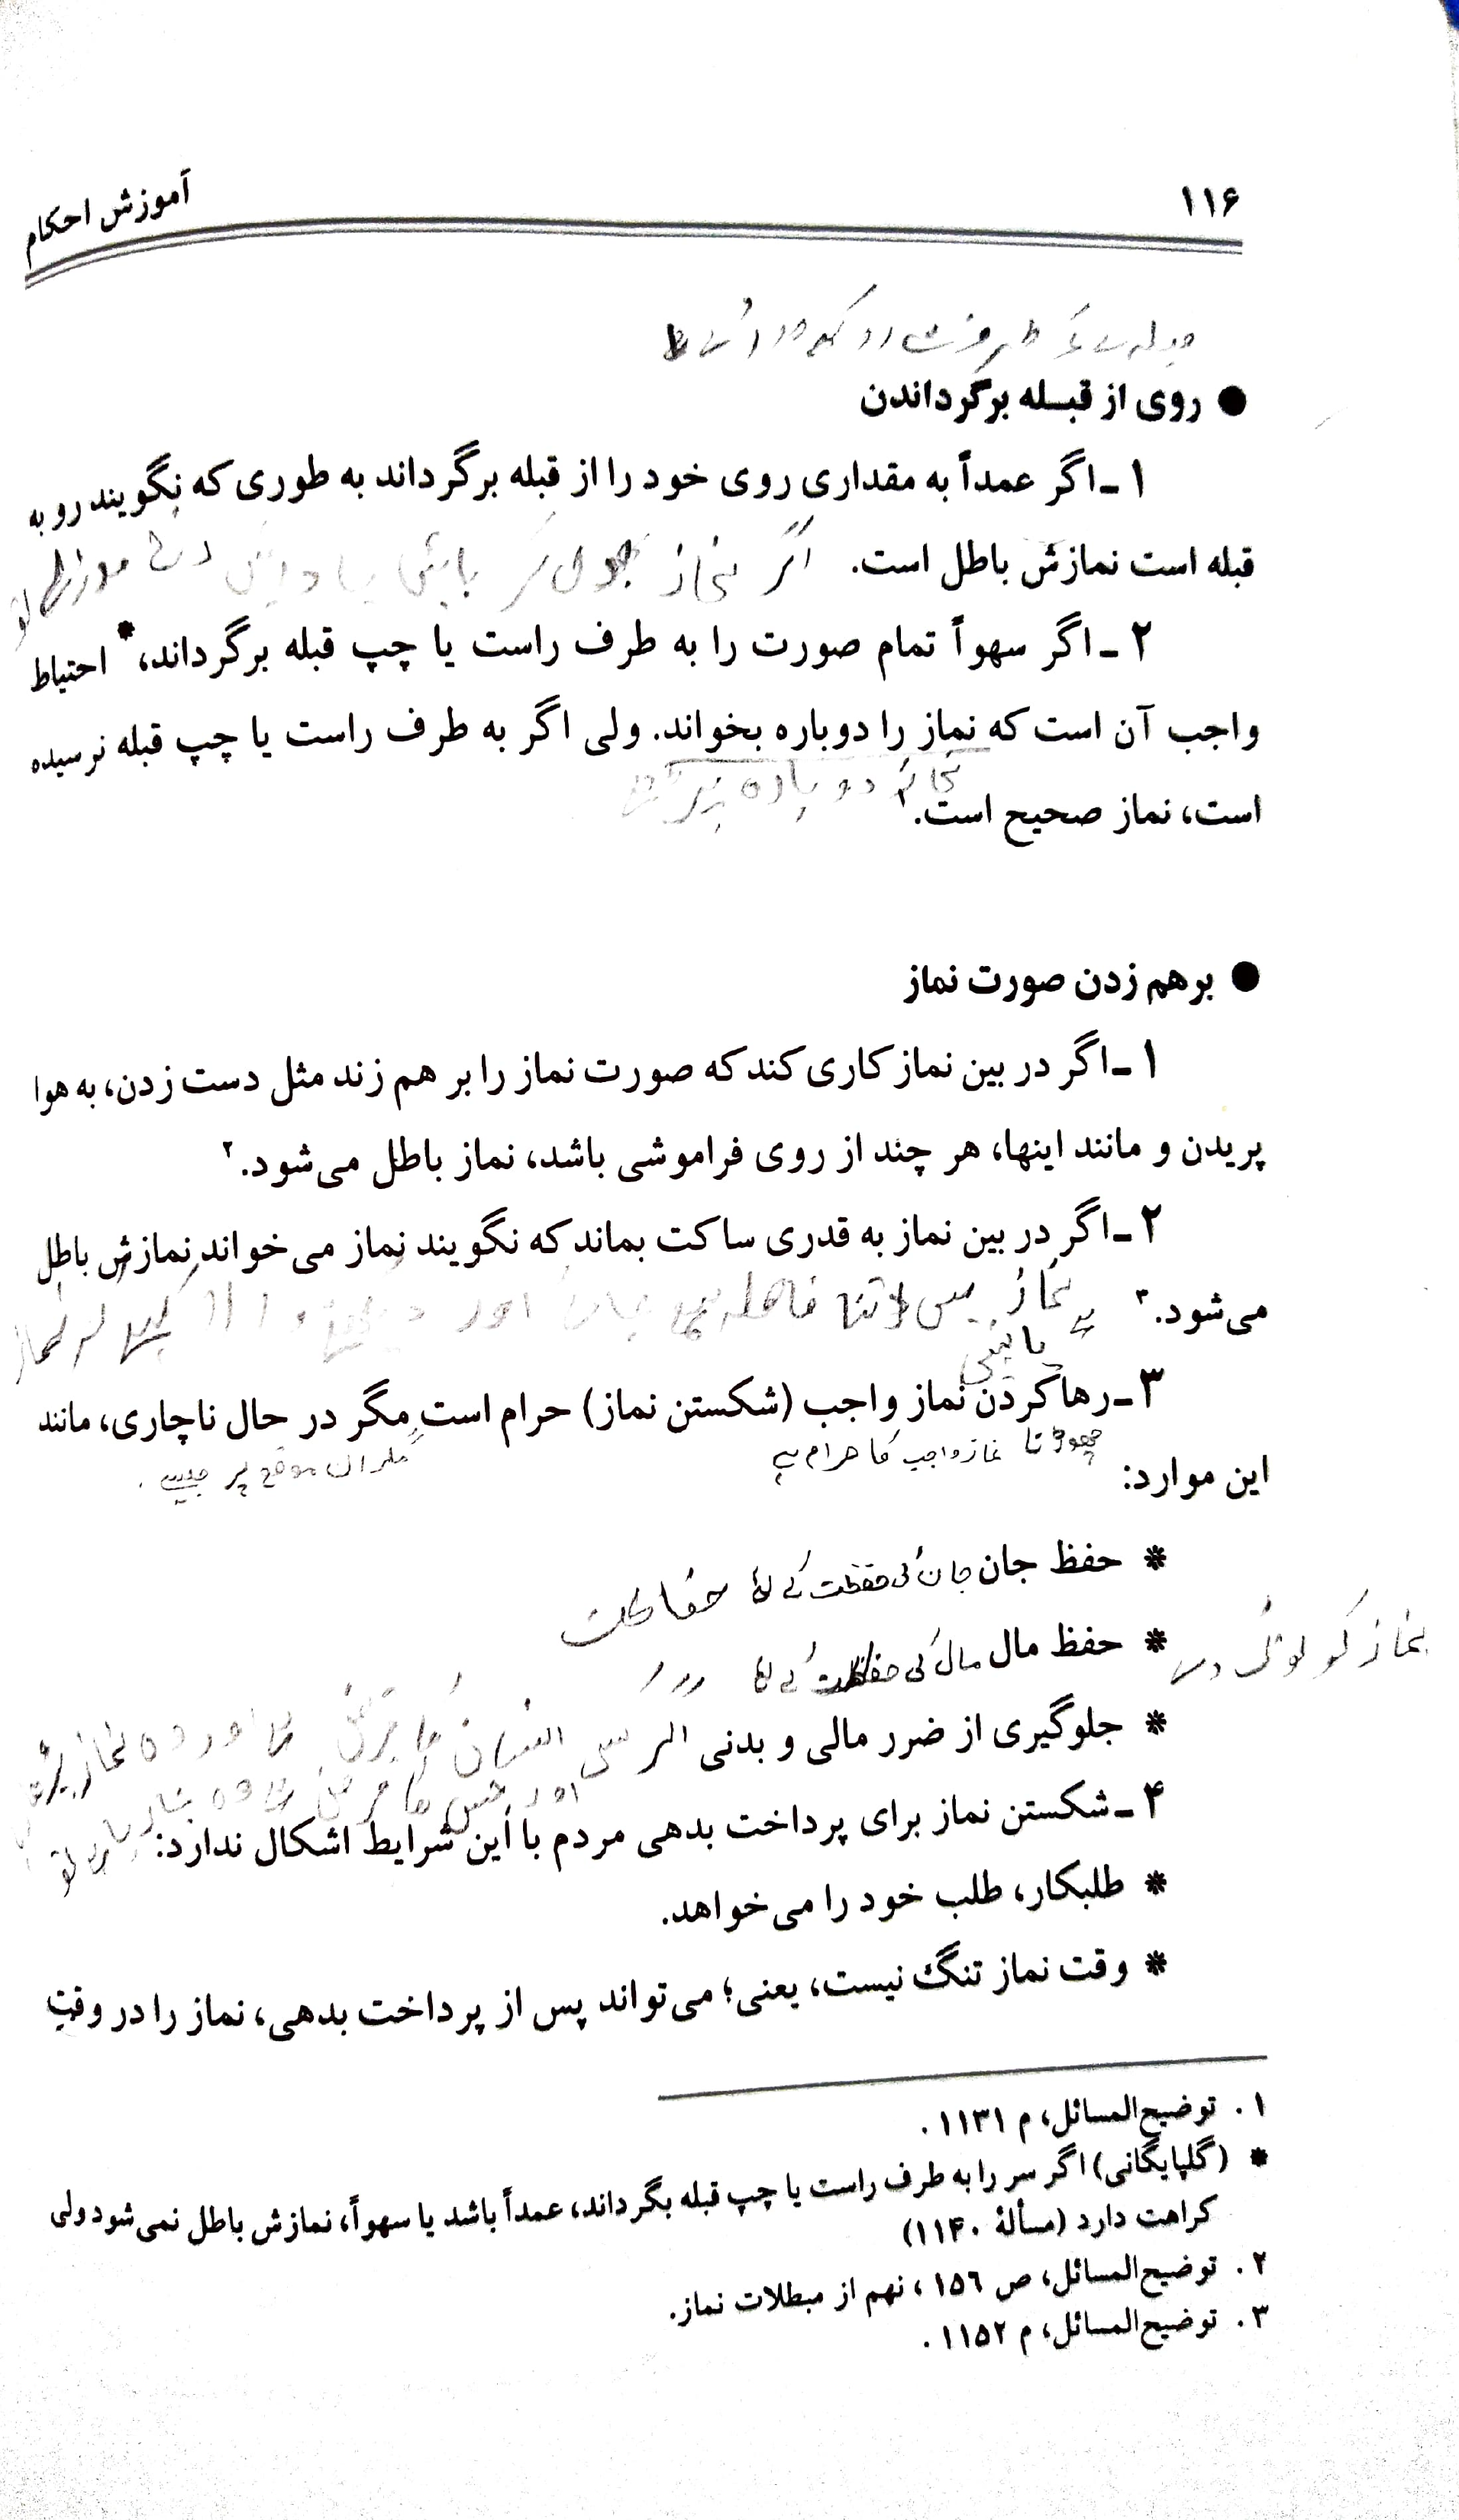 ۱۱۶
آموزش احکام
● روی از قبله برگرداندن
۱ـ اگر عمداً به مقداری روی خود را از قبله برگرداند به طوری که نگویند رو به
قبله است نمازش باطل است. اگر نماز
۲ـ اگر سهواً تمام صورت را به طرف راست یا چپ قبله برگرداند،* احتیاط
واجب آن است که نماز را دوباره بخواند. ولی اگر به طرف راست یا چپ قبله نرسیده
است، نماز صحیح است.۱
دوباره
● برهم زدن صورت نماز
۱ـ اگر در بین نماز کاری کند که صورت نماز را بر هم زند مثل دست زدن، به هوا
پریدن و مانند اینها، هر چند از روی فراموشی باشد، نماز باطل می‌شود.۲
۲ـ اگر در بین نماز به قدری ساکت بماند که نگویند نماز می‌خواند نمازش باطل
می‌شود.۳
۳ـ رها کردن نماز واجب (شکستن نماز) حرام است مگر در حال ناچاری، مانند
چھوڑنا نماز واجب کا حرام ہے
مگر ان موقع پر جیسے
این موارد:
* حفظ جان جان کی حفظت کے لۓ حفاظت
* حفظ مال مال کی کے لۓ
نماز کو
* جلوگیری از ضرر مالی و بدنی اگر کسی انسان
۴ـ شکستن نماز برای پرداخت بدهی مردم با این شرایط اشکال ندارد:
* طلبکار، طلب خود را می‌خواهد.
* وقت نماز تنگ نیست، یعنی؛ می‌تواند پس از پرداخت بدهی، نماز را در وقت
۱. توضیح‌المسائل، م ۱۱۳۱.
* (گلپایگانی) اگر سر را به طرف راست یا چپ قبله بگرداند، عمداً باشد یا سهواً، نمازش باطل نمی‌شود ولی
کراهت دارد (مسألۀ ۱۱۴۰)
۲. توضیح‌المسائل، ص ۱۵۶، نهم از مبطلات نماز.
۳. توضیح‌المسائل، م ۱۱۵۲.